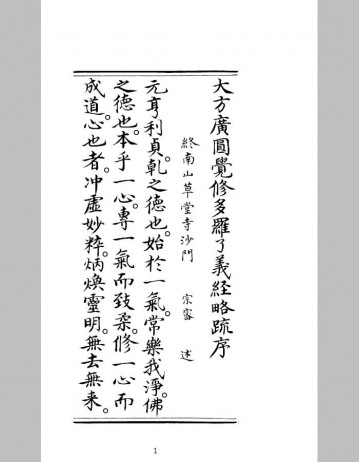 大方廣圓覺修多羅了義經略疏序
終南山草堂寺沙門 宗密 述
元亨利貞。乾之德也。始於一氣。常樂我淨。佛
之德也。本乎一心。專一氣而致柔。修一心而
成道。心也者。冲虛妙粹。炳煥靈明。無去無来。
1